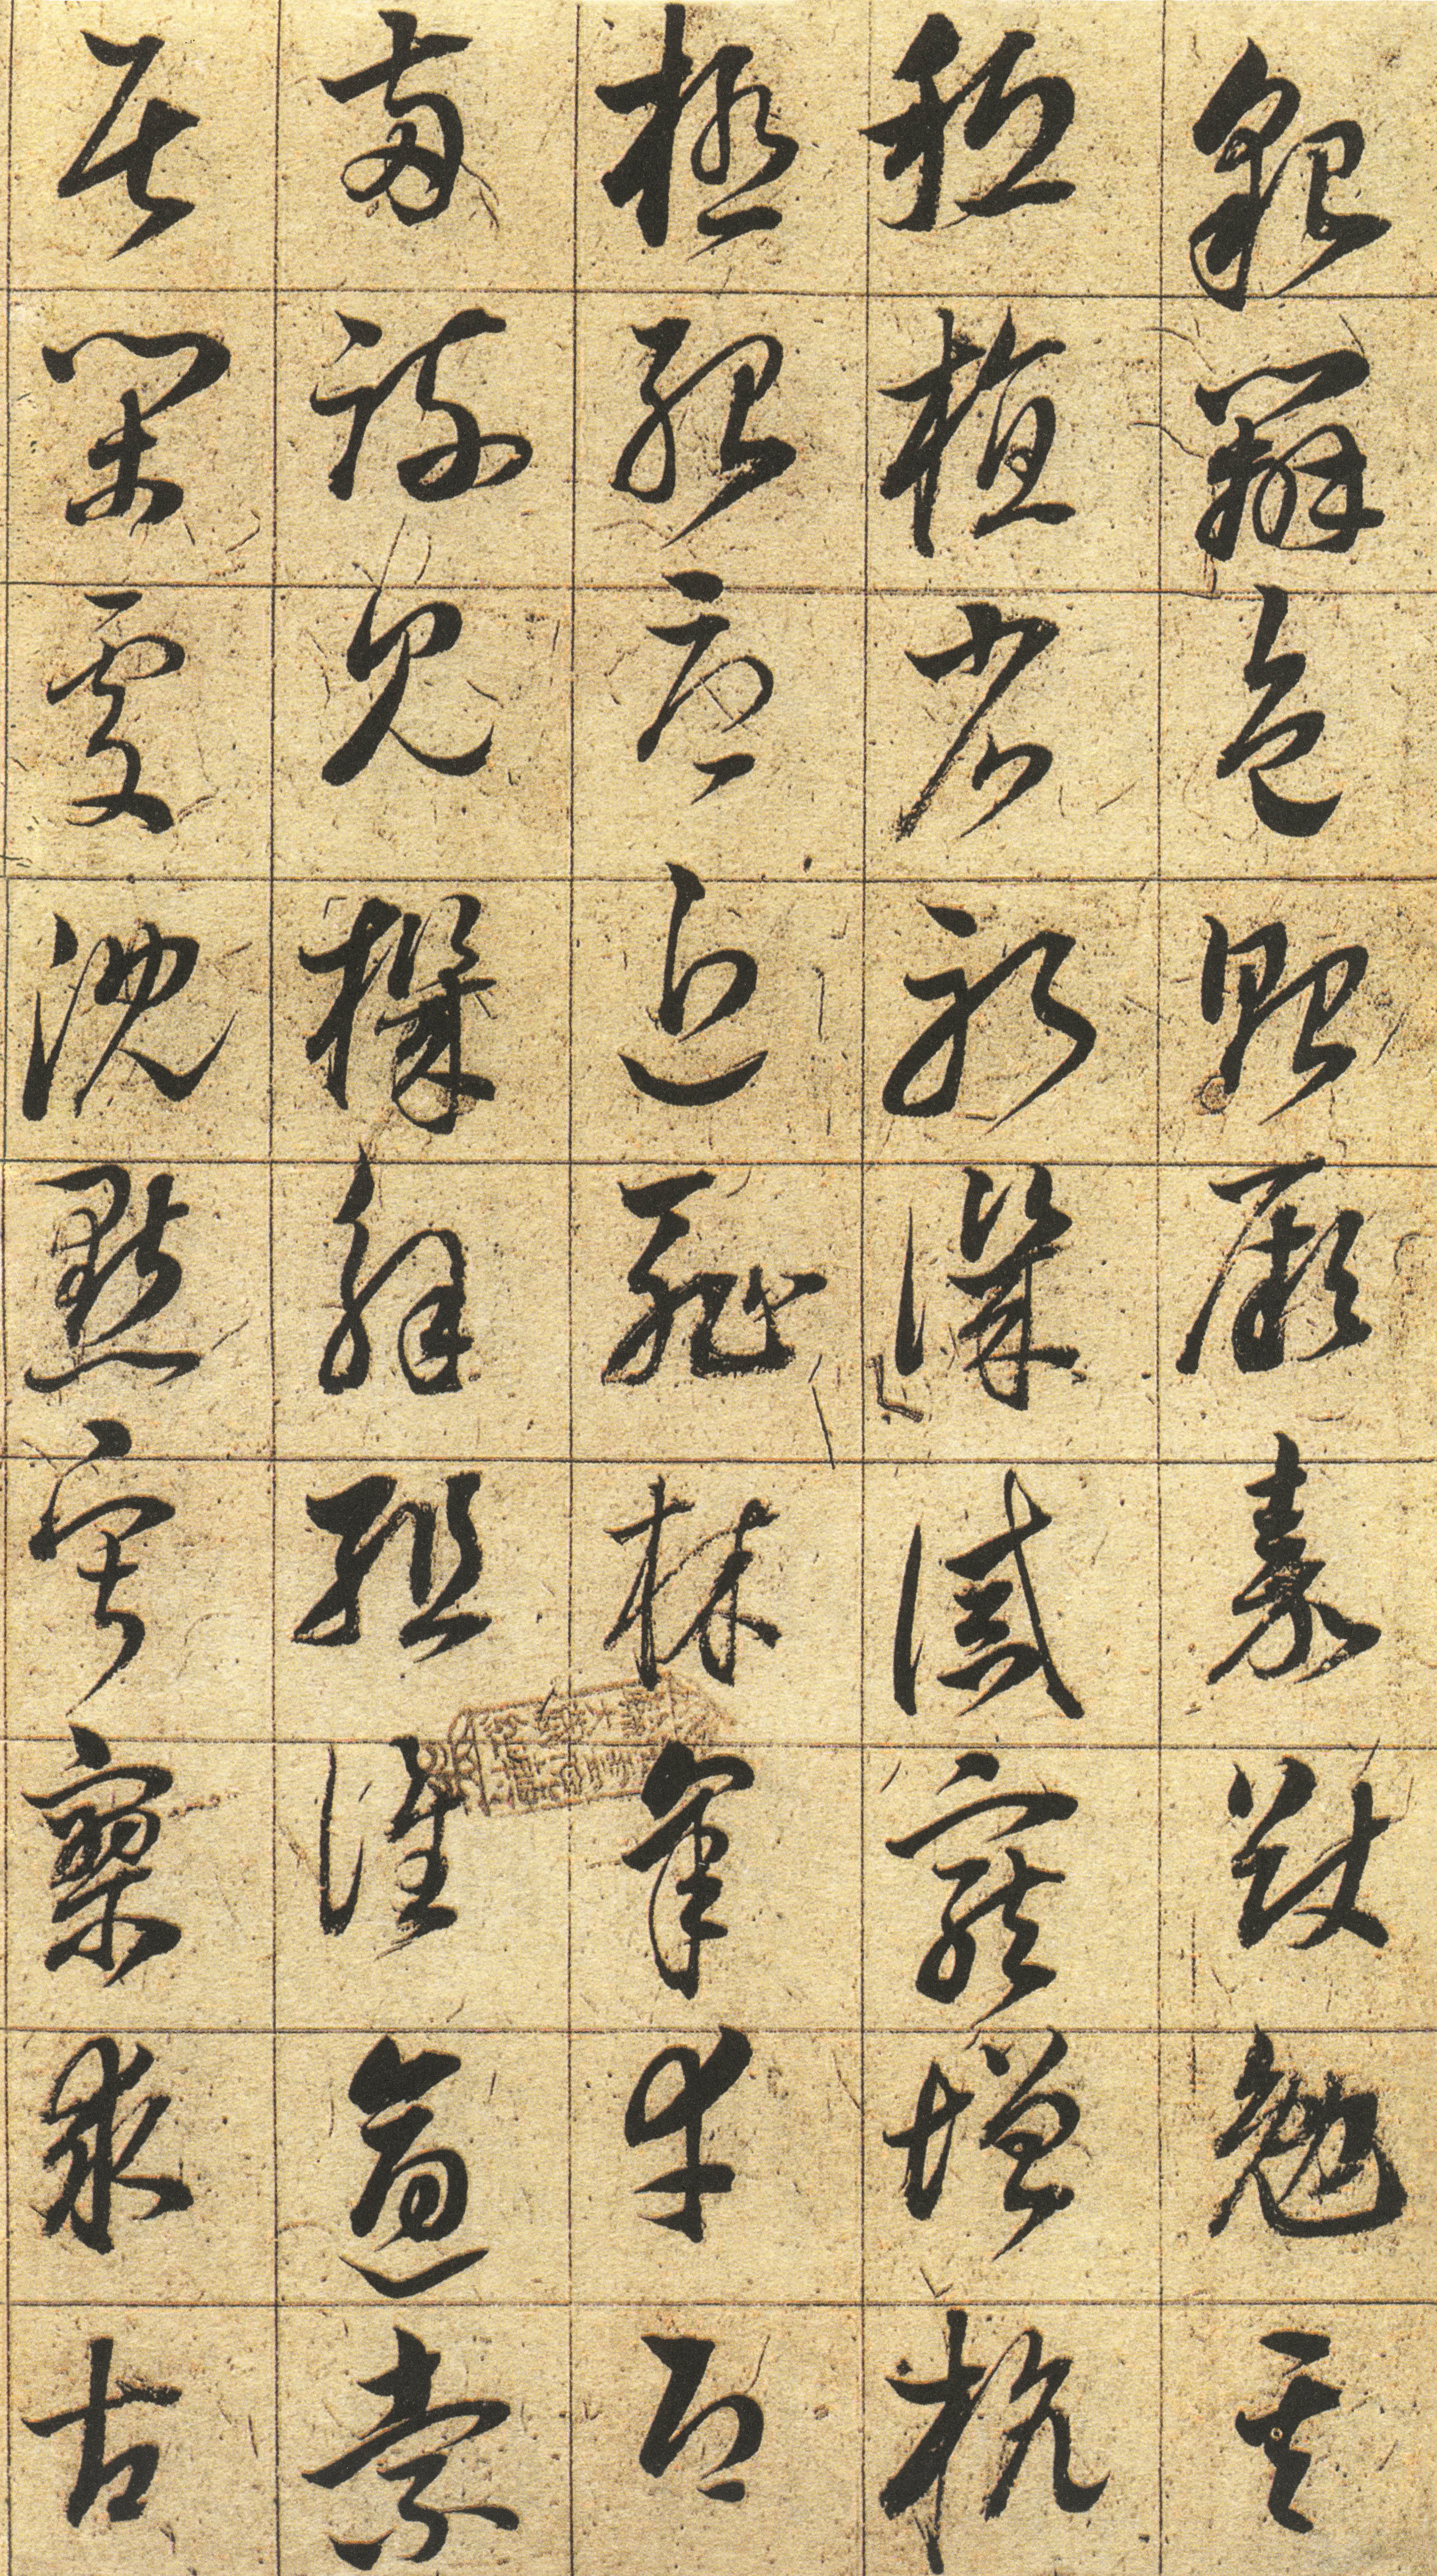 貌辯色貽厥嘉猷勉其
祗植省躬譏誡寵增抗
極殆辱近恥林皋幸即
兩疏見機解組誰逼索
居閑處沈默寂寥求古